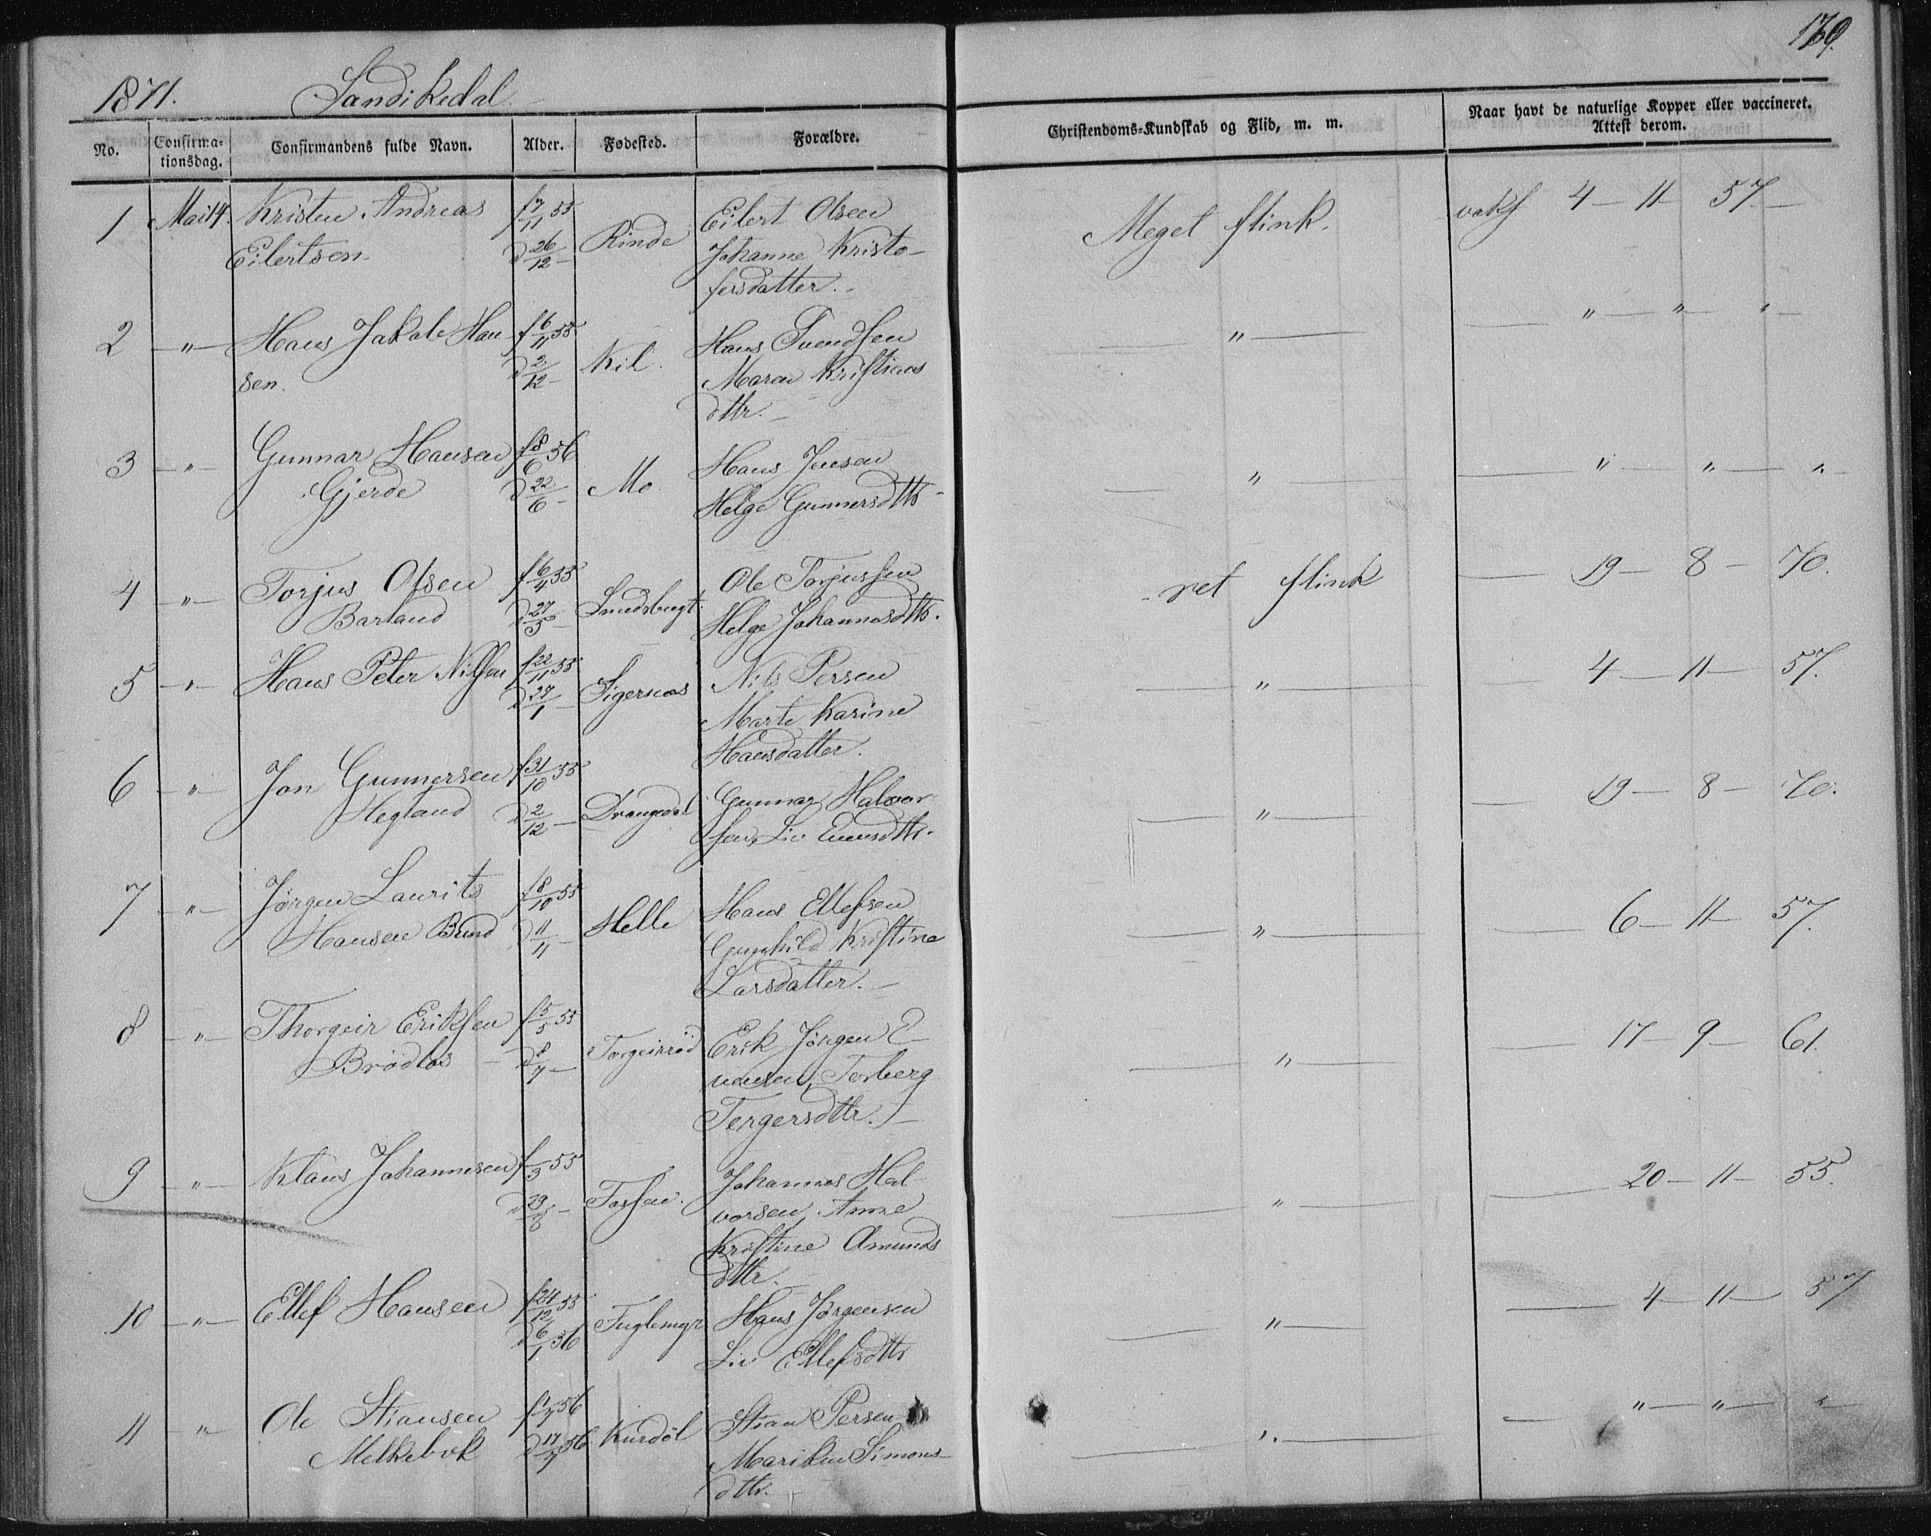 169.
1871. Sandikedal.
No. Confirma-tionsdag. Confirmandens fulde Navn. Alder. Fødested. Forældre. Christendoms-Kundskab og Flid, m. m. Naar havt de naturlige Kopper eller vaccineret. Attest derom.
1 Mai 14. Kristen Andreas f 7/11 55 Rinde Eilert Olsen Meget flink. vakf 4 – 11 57. –
Eilertsen d 26/12 – Johanne Kristo-
fersdatter. –
2 – " – Hans Jakob Han f 6/11 55 Kil. Hans Svendsen – " – – " – " – "
sen. d 2/12 – Maren Kristians
dttr. –
3 – " – Gunnar Hansen f 8/6 56 Mo. Hans Jensen – " – – " – " – "
Gjerde d 22/6 – Helge Gunnersdttr
4 – " – Torjus Olsen f 6/4 55 Smedsbugt. Ole Torjussen ret flink – 19 – 8 – 70.
Barland d 27/5 – Helge Johannesdttr.
5 – " – Hans Peter Nilsen f 22/11 55 Sigernæs Nils Persen – " – – 4 – 11 – 57.
d 27/1 – Marte Karine
Hansdatter.
6 – " – Jon Gunnersen f 31/10 55 Drangedal Gunnar Halvor- – " – – 19 – 8 – 70.
Hegland d 2/12 – sen, Liv Evensdttr.
7 – " – Jørgen Laurits f 8/10 55 Helle Hans Ellefsen – " – – 6 – 11 – 57.
Hansen Brend d 11/11 – Gunhild Kristine
Larsdatter. –
8 – " – Thorgeir Eriksen f 5/5 55 Torgeirsrød Erik Jørgen E- – " – – 17 – 9 – 61.
Brødløs – d 8/7 – vensen, Torberg
Tergersdttr. –
9 – " – Klaus Johannesen f 1/3 55 Johannes Hal- – " – – 20 – 11 – 55.
d 29/6 – vorsen, Anne
Kristine Amunds
dttr. –
10 – " – Ellef Hansen f 24/12 55 Fuglemyr Hans Jørgensen – " – – 4 – 11 – 57
d 6/1 56 Liv Ellefsdttr
11 – " – Ole Stiansen f 1/7 56 Kurdøl Stian Persen – " – – " – " – "
Melkebæk d 17/7 56 Mariken Simons-
dttr.